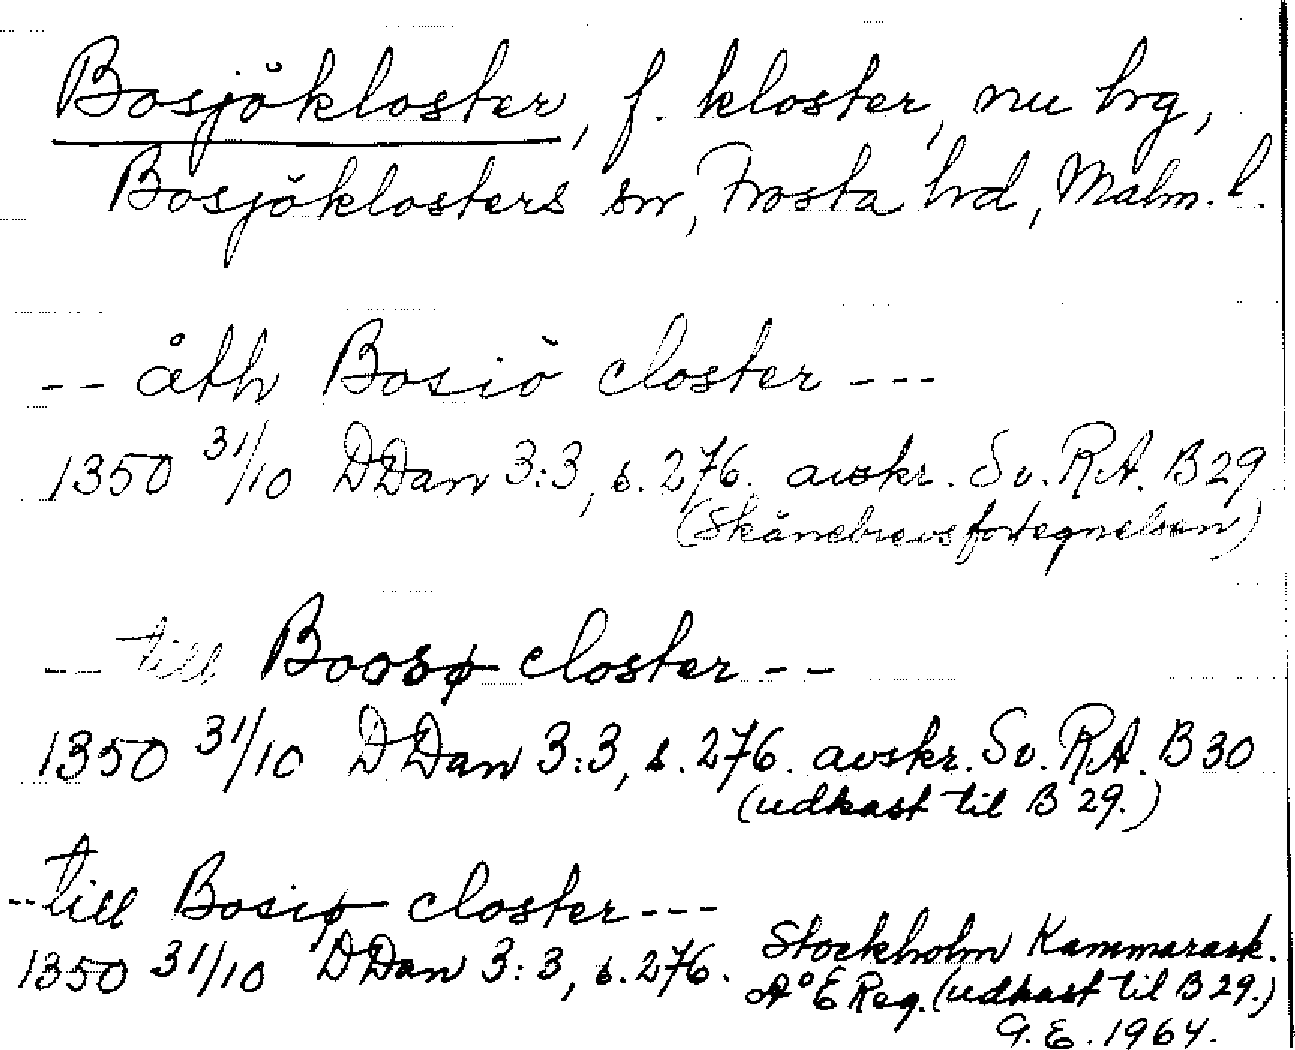 Bosjökloster, f. kloster, nu hrg,
Bosjöklosters sn, Frosta hrd, Malm. l.
-- åth Bosiö closter ---
1350 31/10 DDan 3:3, s. 276. avskr. Sv. RA. B 29
(Skånebrevsfortegnelsen)
-- till Boosø closter --
1350 31/10 DDan 3:3, s. 276. avskr. Sv. RA. B 30
(udkast til B 29.)
-- till Bosiø closter ---
1350 31/10 DDan 3:3, s. 276. Stockholm Kammarark.
A°E Reg. (udkast til B 29.)
G. E. 1964.